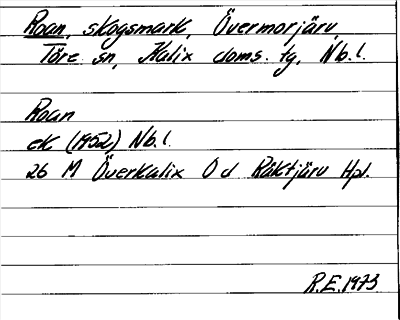 Roan, skogsmark, Övermorjärv,
Töre sn, Kalix doms. tg, Nb.l.
Roan
ek (1952) Nb.l.
26 M Överkalix Od Räktjärv Hpl.
R.E. 1973